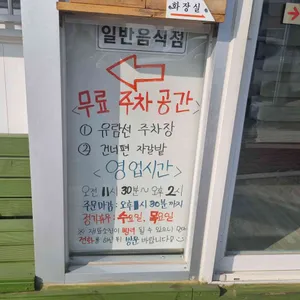 화장실
일반음식점
<무료 주차 공간>
① 유람선 주차장
② 건너편 자갈밭
<영업시간>
오전 11시 30분~오후 2시
주문마감: 오후 1시 30분까지
정기휴무: 수요일, 목요일
전화 후 방문 바랍니다